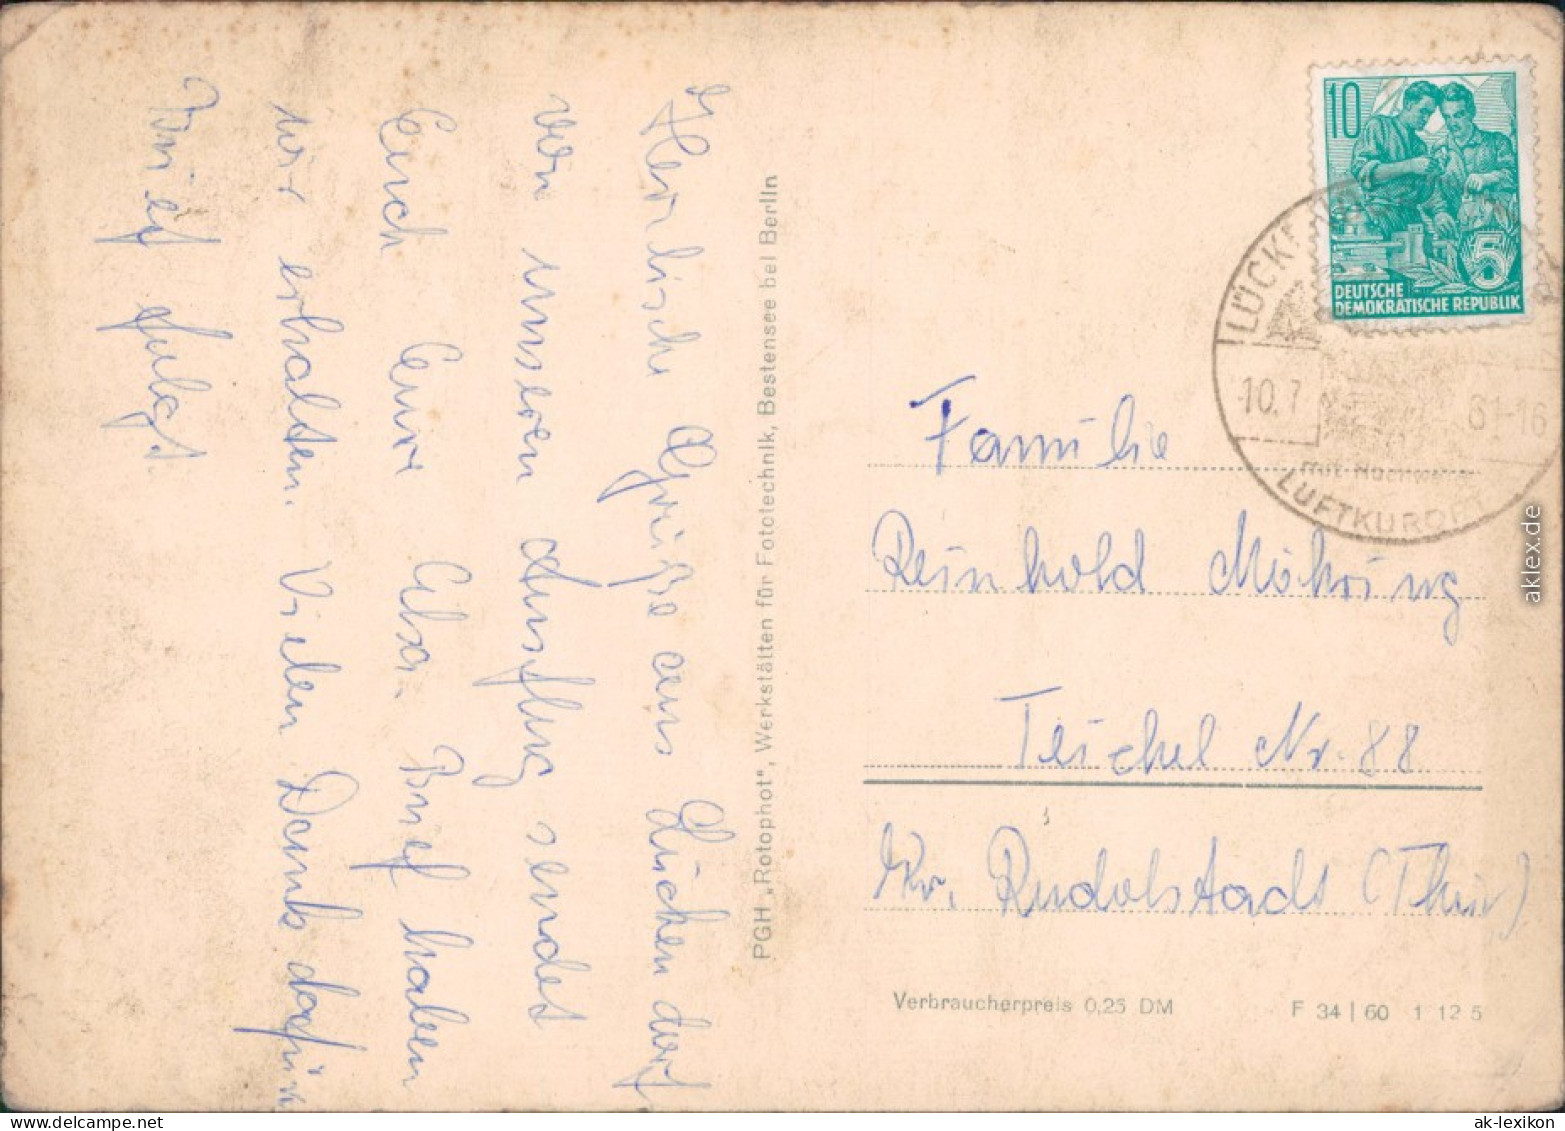 Herzlische Grüße aus Lückendorf
von unseren Ausflug sendet
Euch Eure Elsa. Brief haben
wir erhalten. Vielen Dank dafür
Brief folgt.
PGH „Rotophot", Werkstätten für Fototechnik, Bestensee bei Berlin
10
5
DEUTSCHE
DEMOKRATISCHE REPUBLIK
10.7
61-16
mit Hochwald
LUFTKURORT
Familie
Reinhold Möhring
Teichel Nr. 88
Kr. Rudolstadt (Thür)
Verbraucherpreis 0,25 DM
F 34 | 60 1 12 5
aklex.de
ak-lexikon